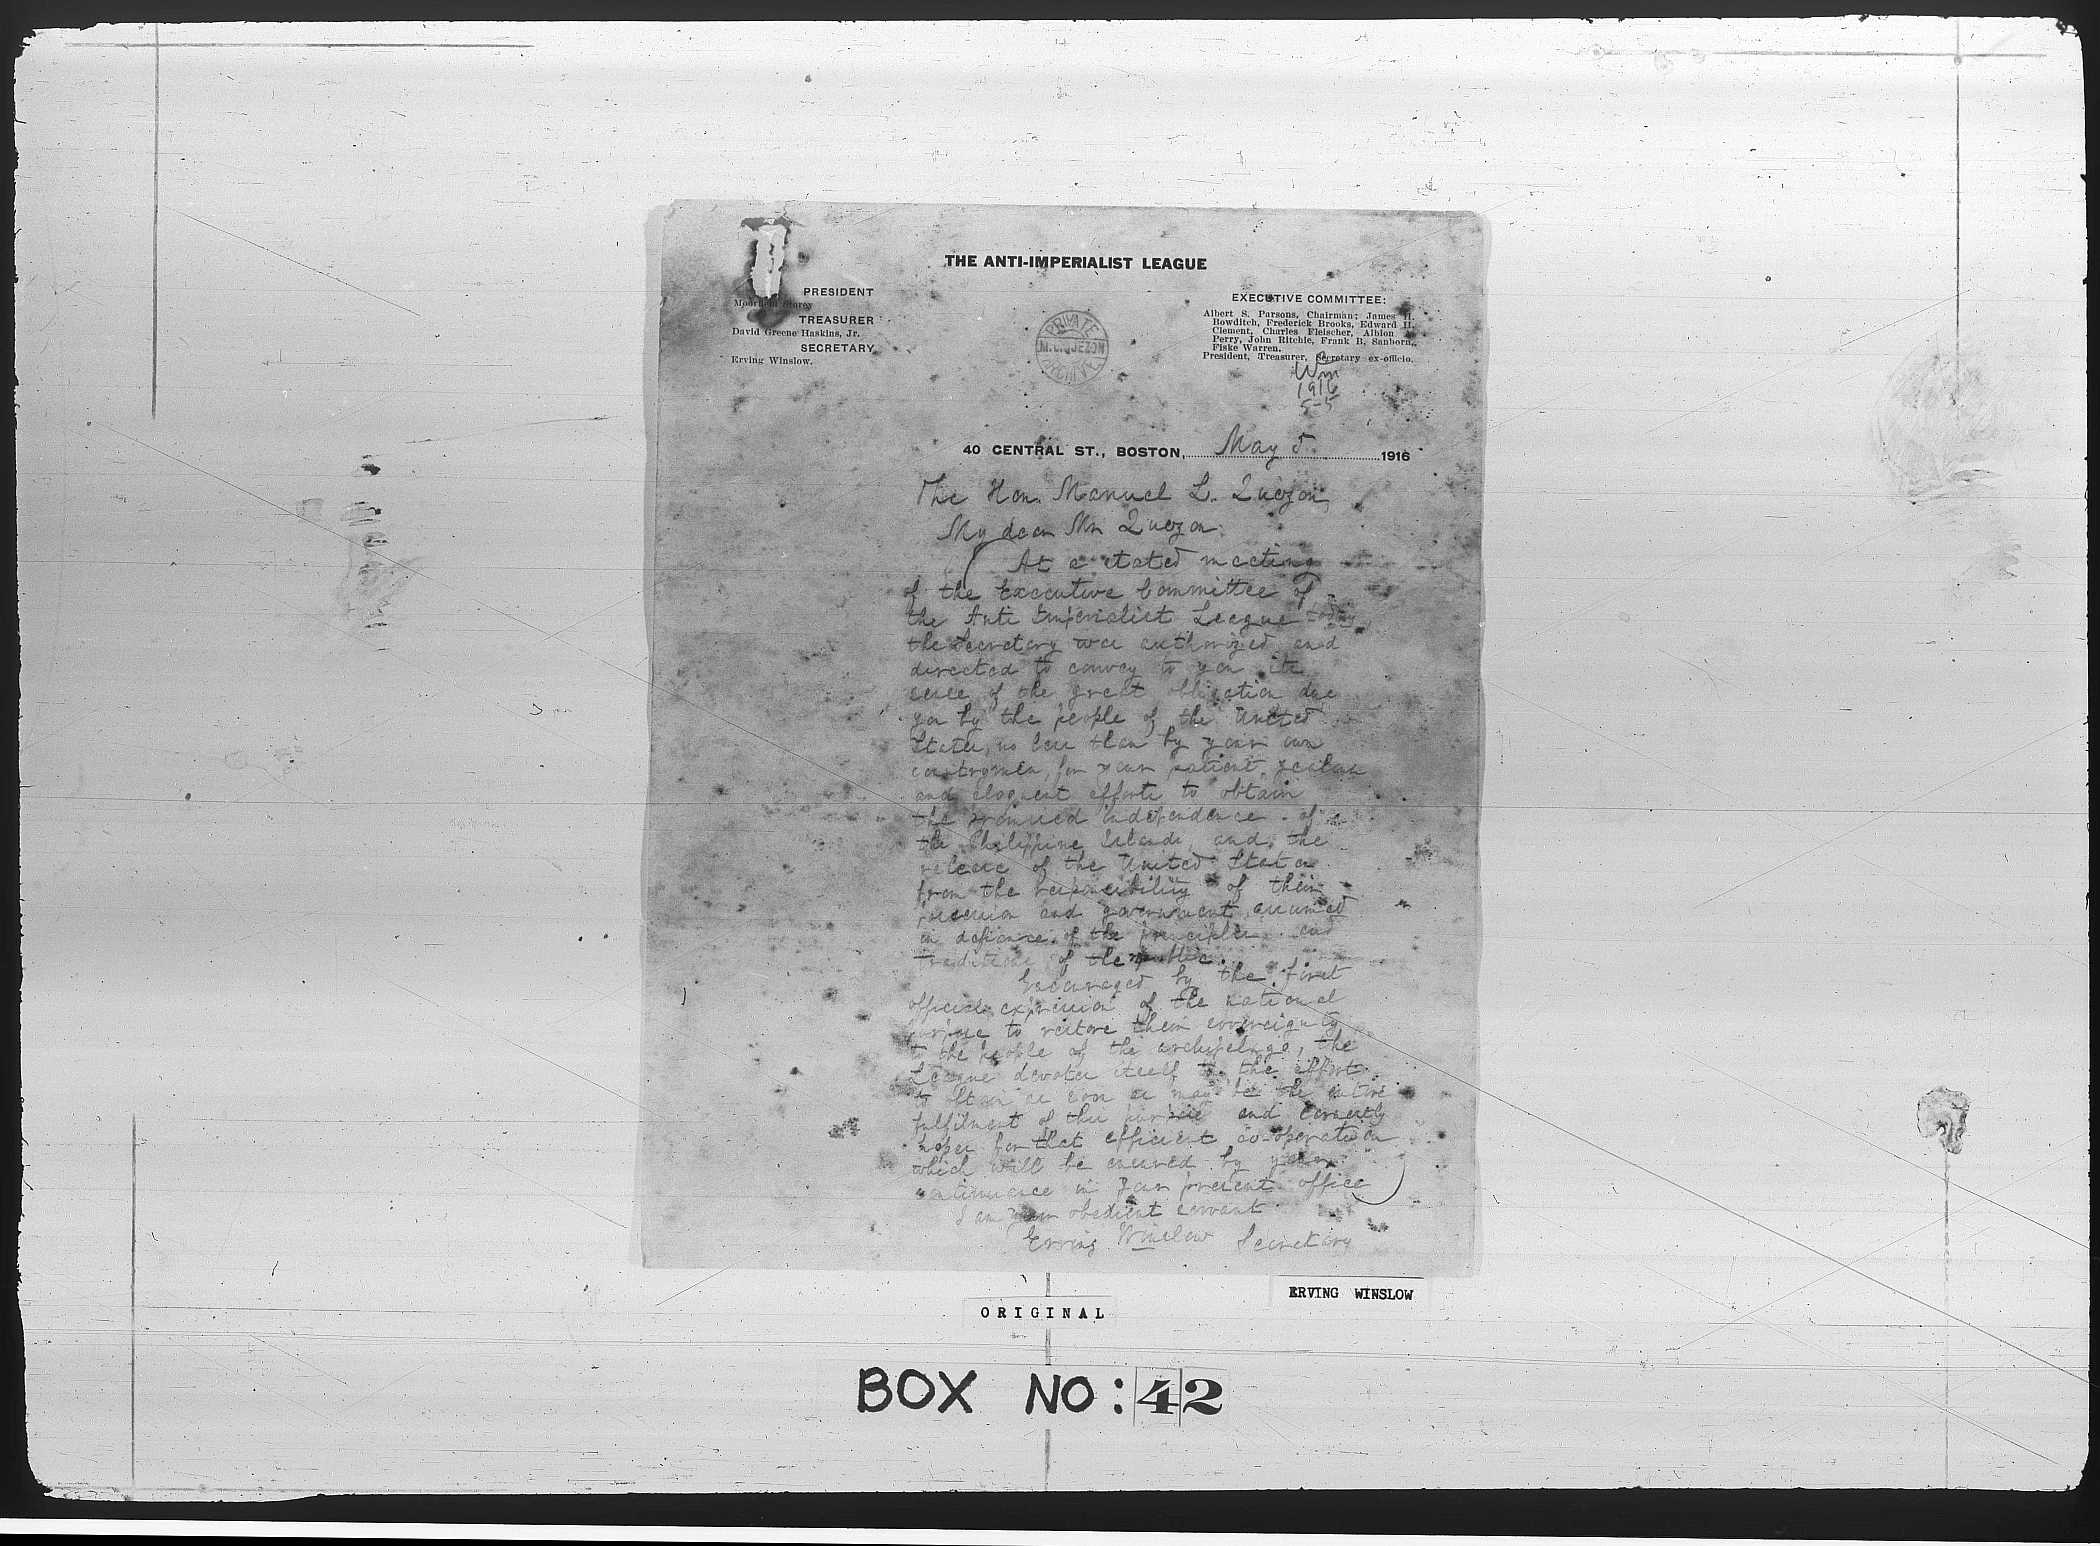 THE ANTI-IMPERIALIST LEAGUE
PRESIDENT
Storey
TREASURER
David Greene Haskins, Jr.
SECRETARY
Erving Winslow.
PRIVATE
M.L.QUEZON
ARCHIVE
EXECUTIVE COMMITTEE:
Albert S. Parsons, Chairman; James H.
Bowditch, Frederick Brooks, Edward H.
Clement, Charles Fleischer, Albion A.
Perry, John Ritchie, Frank B. Sanborn,
Fiske Warren.
President, Treasurer, Secretary ex-officio.
1916
5-5
40 CENTRAL ST., BOSTON, May 5 1916
The Hon. Manuel L. Quezon,
My dear Mr Quezon:
At a stated meeting
of the Executive Committee of
the Anti Imperialist League today,
the Secretary was authorized and
directed to convey to you its
sense of the great obligation due
you by the people of the United
States, no less than by your own
countrymen, for your patient, zealous
and eloquent efforts to obtain
the promised independence of
the Philippine Islands, and the
release of the United States
from the responsibility of their
possession and government, assumed
in defiance of the principles and
traditions of the republic.
Encouraged by the first
official expression of the national
purpose to restore their sovereignty
to the people of the archipelago, the
League devotes itself to the effort
to obtain as soon as may be the entire
fulfilment of this purpose and earnestly
hopes for that efficient co-operation
which will be ensured by your
continuance in your present office
I am your obedient servant
Erving Winslow Secretary
ERVING WINSLOW
ORIGINAL
BOX NO: 42